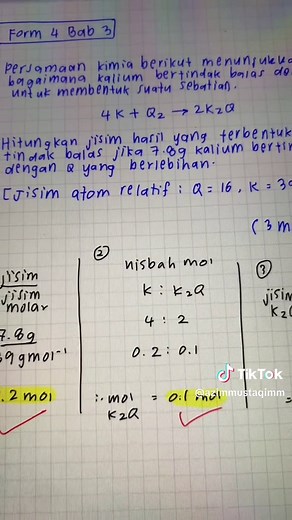 Form 4 Bab 3
Persamaan kimia berikut menunjukk
bagaimana kalium bertindak balas de
untuk membentuk suatu sebatian.
4K + Q₂ → 2K₂Q
Hitungkan jisim hasil yang terbentuk
tindak balas jika 7.8g kalium bertin
dengan Q yang berlebihan.
[Jisim atom relatif : Q = 16, K = 39
(3 m
jisim
jisim
molar
7.8g
39gmol⁻¹
.2 mol
②
nisbah mol
K : K₂Q
4 : 2
0.2 : 0.1
∴ mol = 0.1 mol
K₂Q
③
jisim
K₂Q
=
TikTok